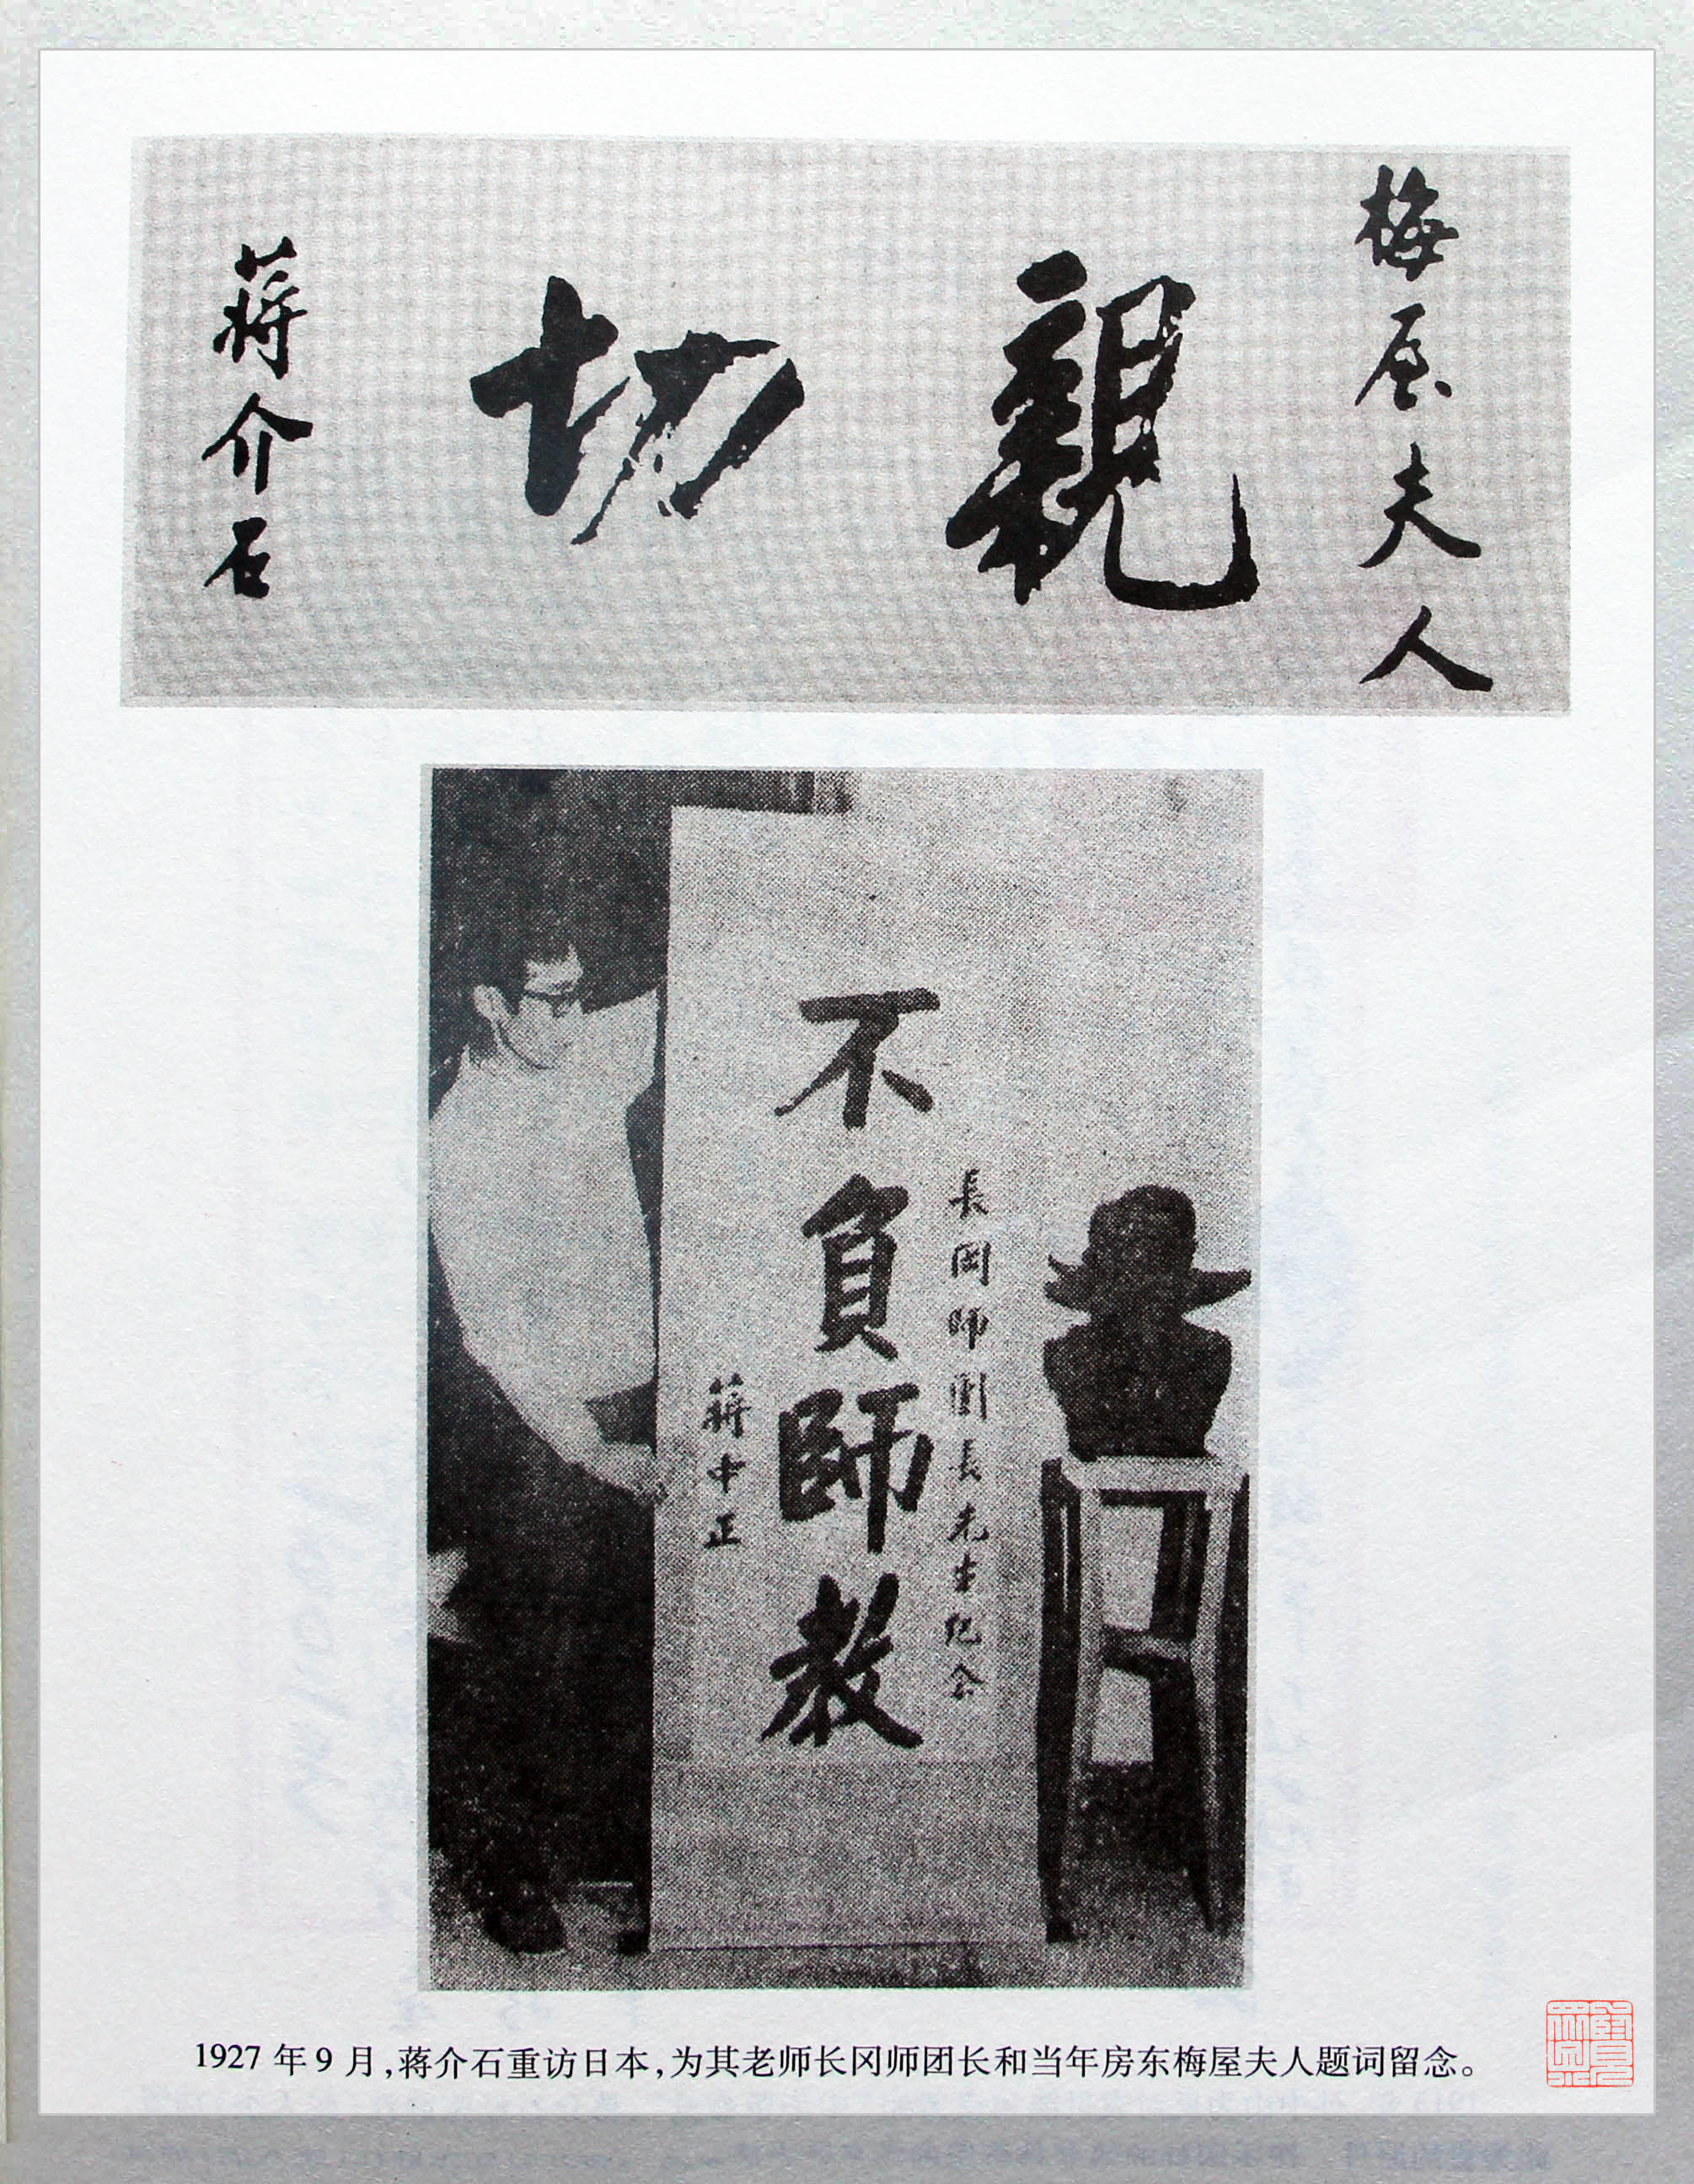 梅屋夫人
親切
蔣介石
長岡師團長先生紀念
不負師教
蔣中正
1927年9月,蒋介石重访日本,为其老师长冈师团长和当年房东梅屋夫人题词留念。